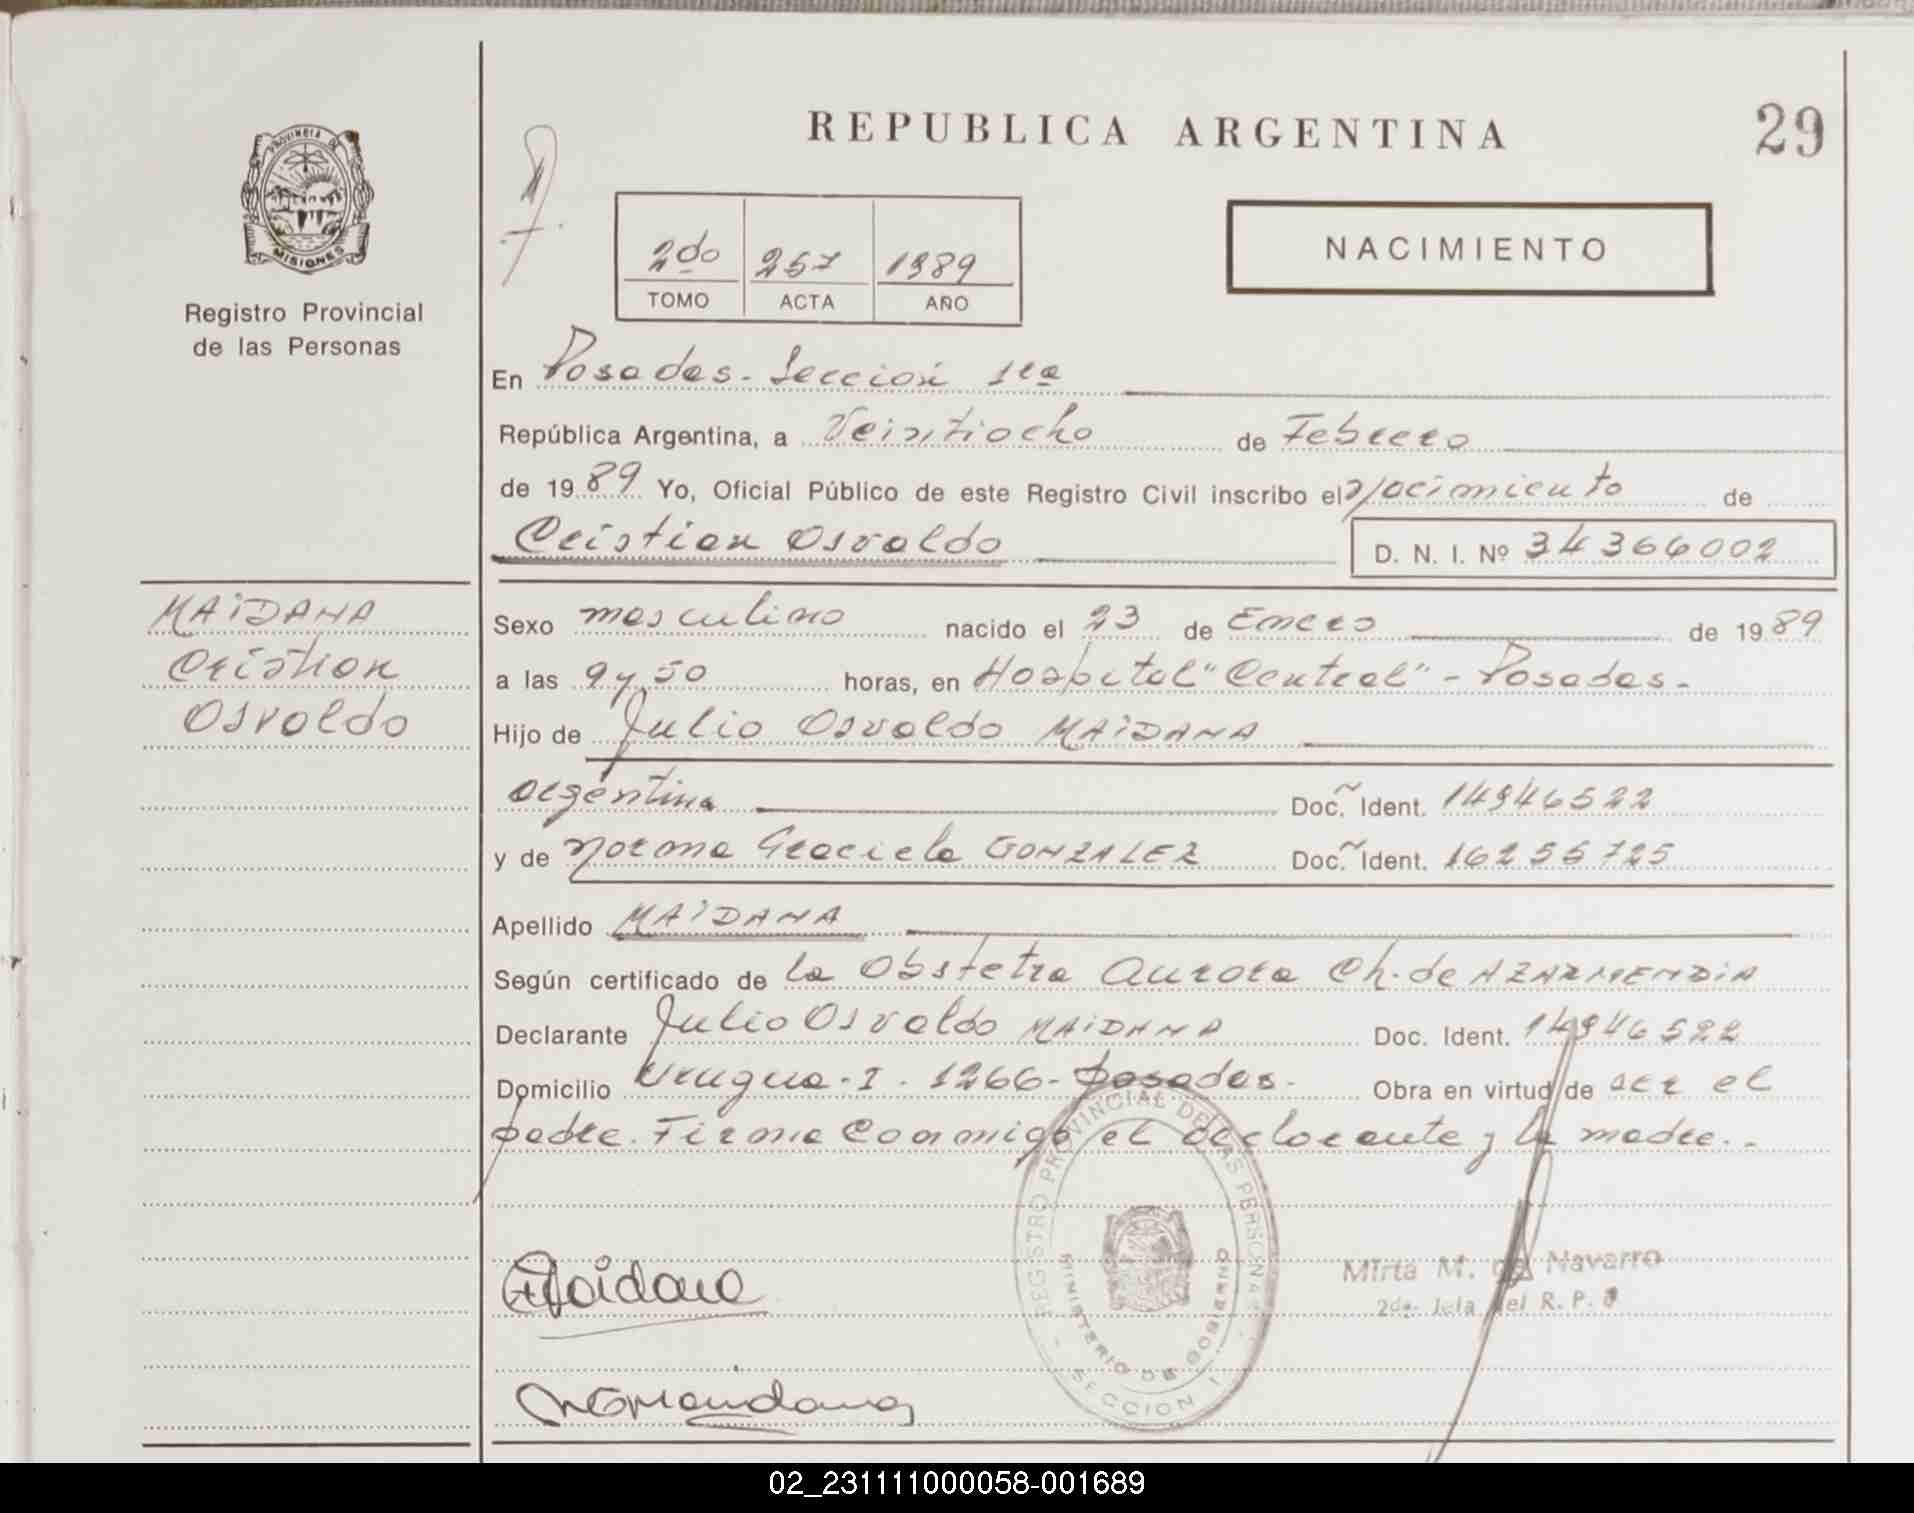 REPUBLICA ARGENTINA
29
PROVINCIA DE
MISIONES
Registro Provincial
de las Personas
2do 257 1989
TOMO ACTA AÑO
NACIMIENTO
En Posadas - Sección 1ra
República Argentina, a Veintiocho de Febrero
de 1989 Yo, Oficial Público de este Registro Civil inscribo el Nacimiento de
Cristian Osvaldo
D. N. I. Nº 34366002
MAiDANA
Cristian
Osvaldo
Sexo masculino nacido el 23 de Enero de 1989
a las 9 y 50 horas, en Hospital "Central" - Posadas -
Hijo de Julio Osvaldo MAiDANA
argentina Doc. Ident. 14946522
y de Norma Graciela GONZALEZ Doc. Ident. 16255725
Apellido MAiDANA
Según certificado de la Obstetra Aurora Ch. de AZARMENDiA
Declarante Julio Osvaldo MAiDANA Doc. Ident. 14946522
Domicilio 1266 - Posadas - Obra en virtud de ser el
padre. Firma Conmigo el declarante y la madre. -
REGISTRO PROVINCIAL DE LAS PERSONAS
MINISTERIO DE GOBIERNO
- SECCION 1 -
Maidana
Mirta M. de Navarro
2da. Jefa del R. P.
02_231111000058-001689